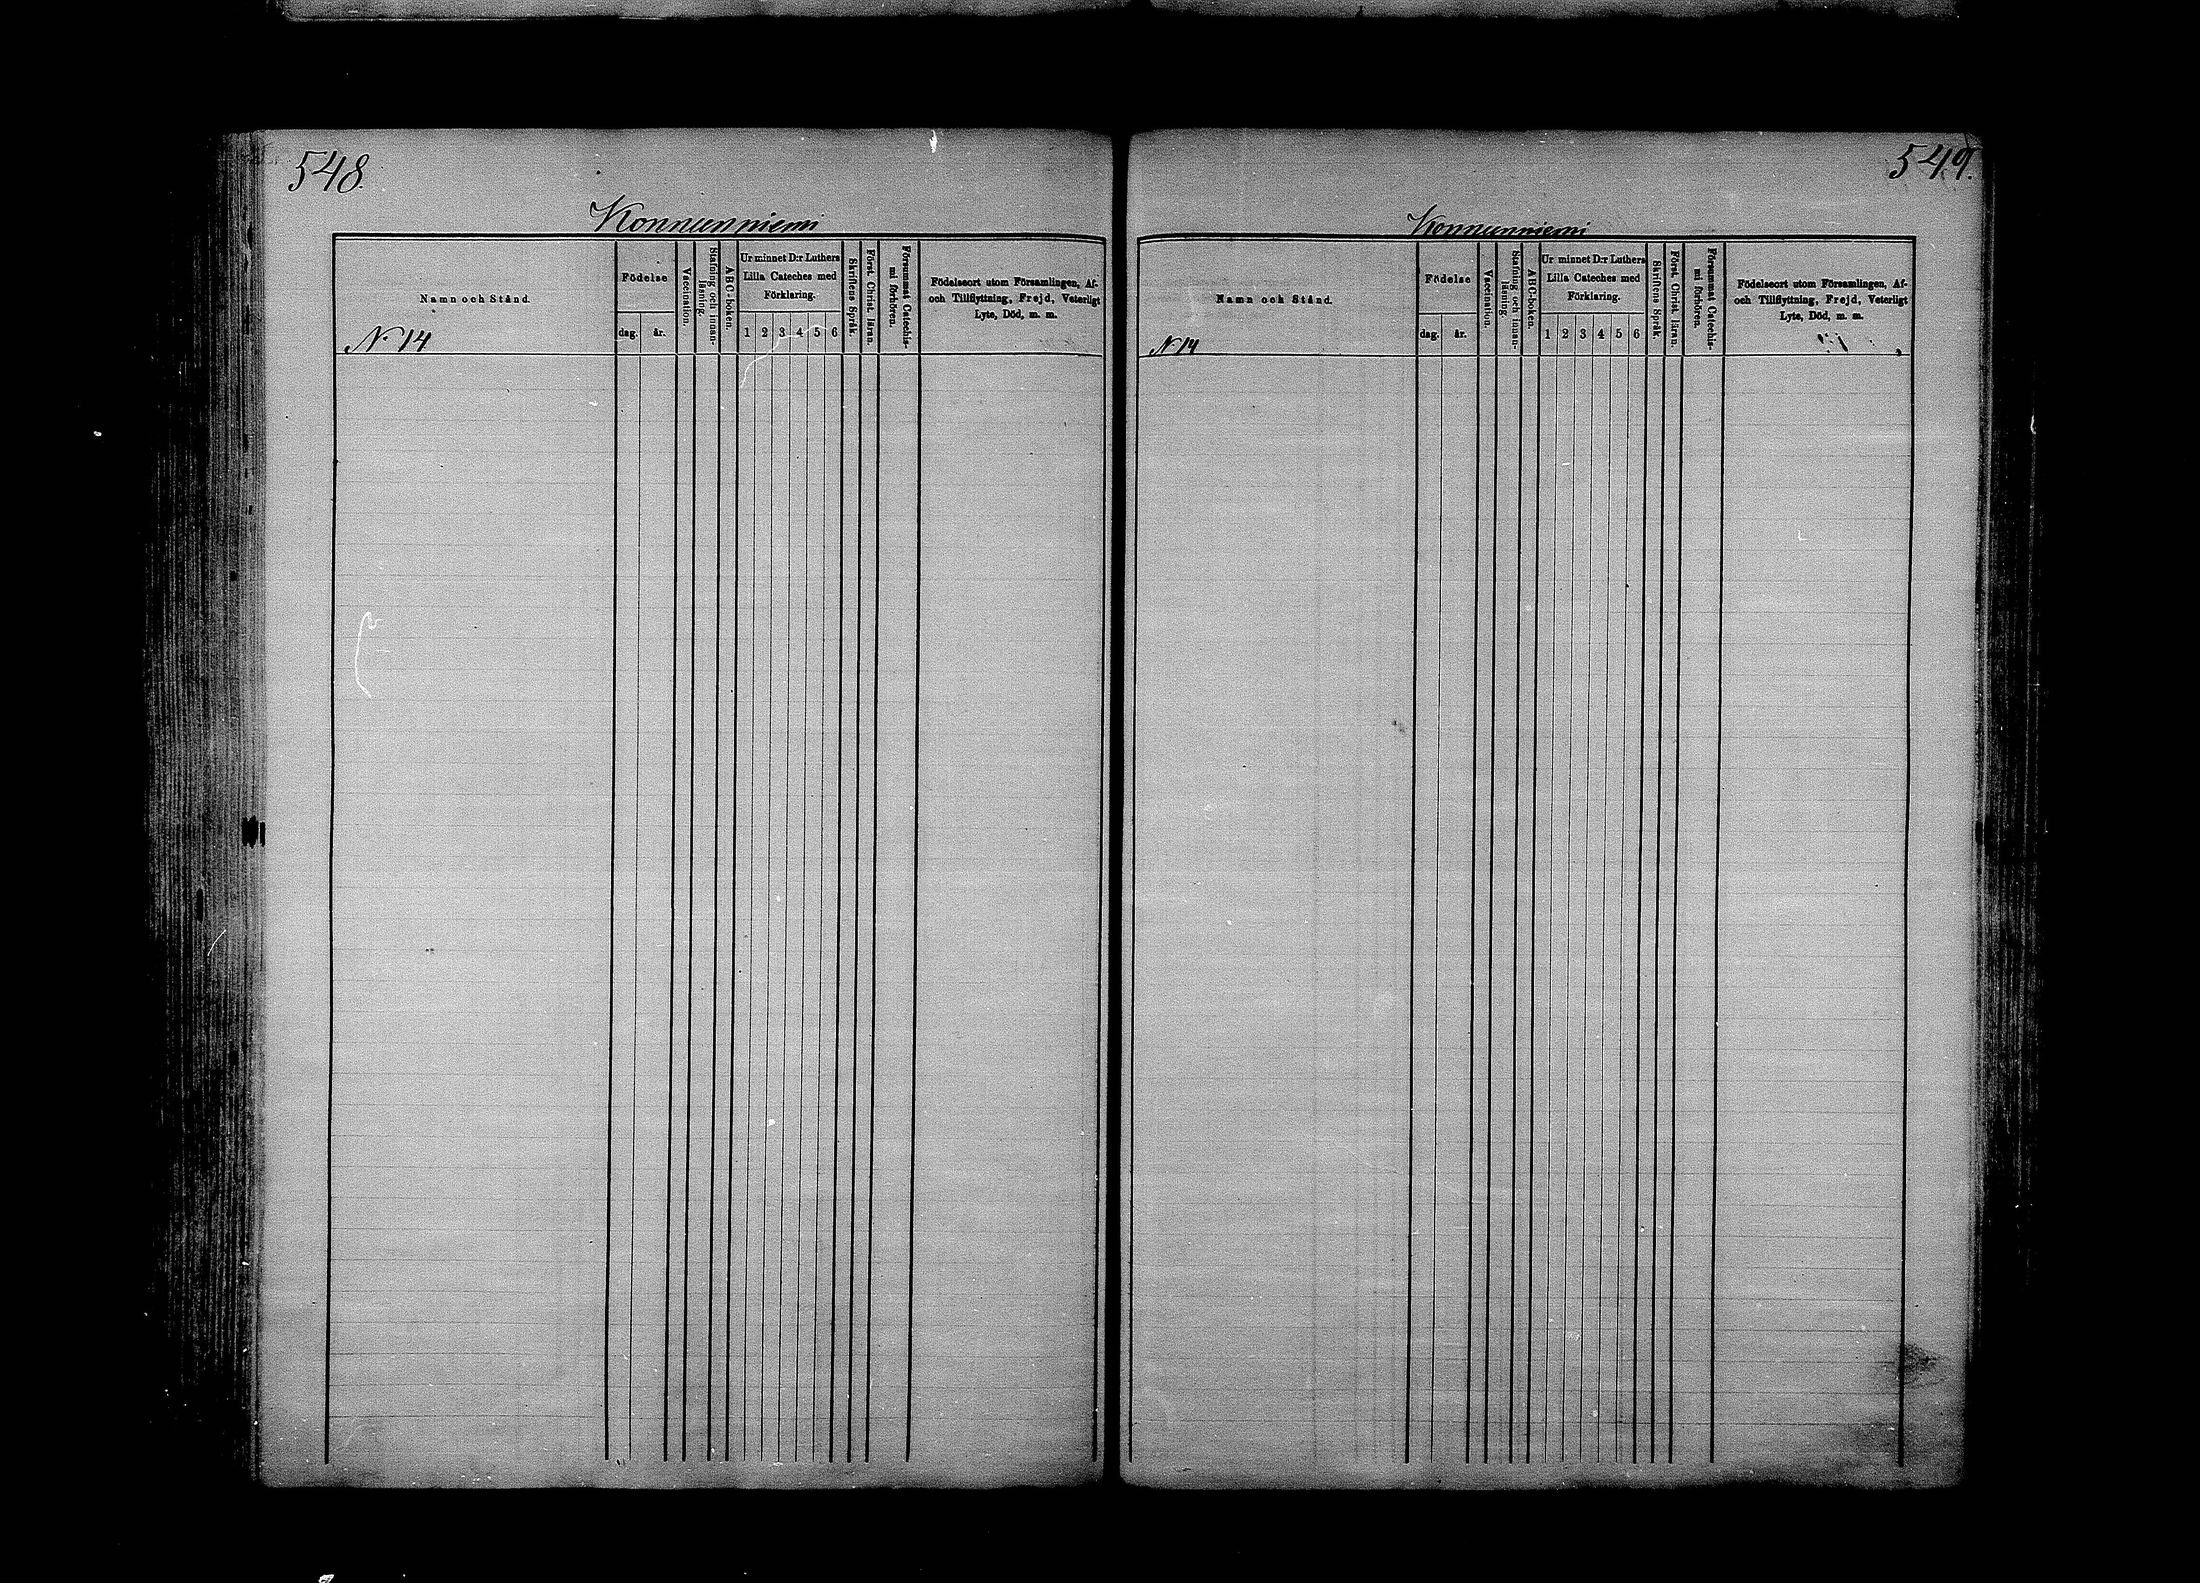 548.
Konnunniemi
Namn och Stånd.
N. 14
Födelse
dag.
år.
Vaccination.
Stafning och innan-
läsning.
ABC-boken.
Ur minnet D:r Luthers
Lilla Cateches med
Förklaring.
1 2 3 4 5 6
Skriftens Språk.
Först. Christ. läran.
Försummat Catechis-
mi förhören.
Födelseort utom Församlingen, Af-
och Tillflyttning, Frejd, Veterligt
Lyte, Död, m. m.
549.
Konnunniemi
Namn och Stånd.
N. 14
Födelse
dag.
år.
Vaccination.
Stafning och innan-
läsning.
ABC-boken.
Ur minnet D:r Luthers
Lilla Cateches med
Förklaring.
1 2 3 4 5 6
Skriftens Språk.
Först. Christ. läran.
Försummat Catechis-
mi förhören.
Födelseort utom Församlingen, Af-
och Tillflyttning, Frejd, Veterligt
Lyte, Död, m. m.